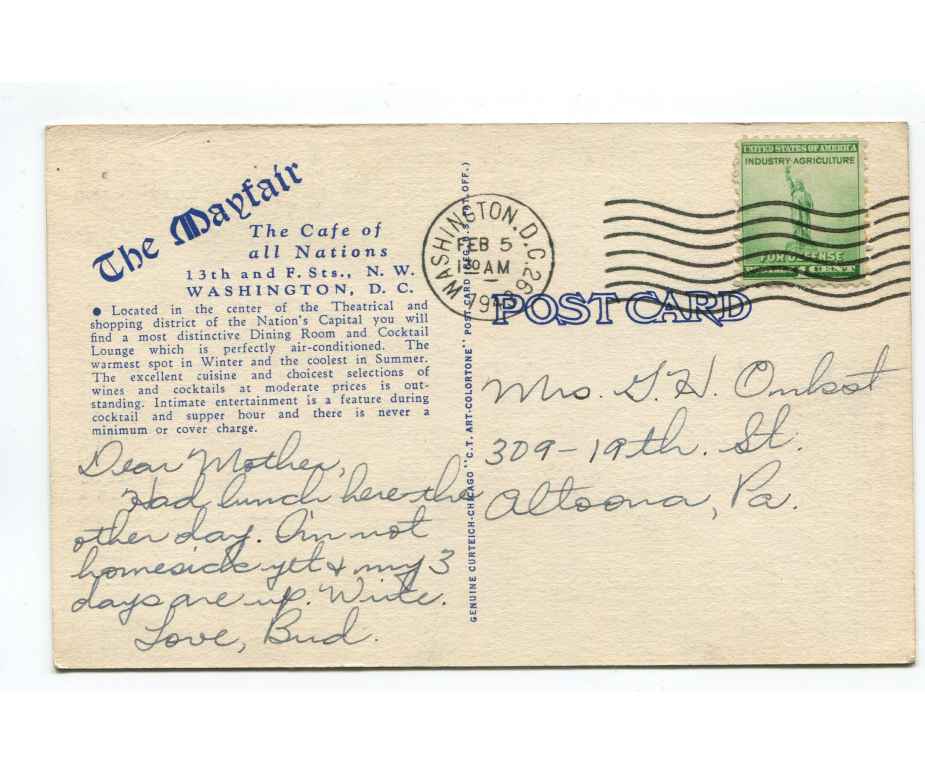 The Mayfair
The Cafe of
all Nations
13th and F. Sts., N. W.
WASHINGTON, D. C.
● Located in the center of the Theatrical and
shopping district of the Nation's Capital you will
find a most distinctive Dining Room and Cocktail
Lounge which is perfectly air-conditioned. The
warmest spot in Winter and the coolest in Summer.
The excellent cuisine and choicest selections of
wines and cocktails at moderate prices is out-
standing. Intimate entertainment is a feature during
cocktail and supper hour and there is never a
minimum or cover charge.
Dear Mother,
Had lunch here the
other day. I'm not
homesick yet & my 3
days are up. Write.
Love, Bud.
GENUINE CURTEICH-CHICAGO "C.T. ART-COLORTONE" POST CARD (REG. U.S. PAT. OFF.)
WASHINGTON, D.C.
FEB 5
AM
UNITED STATES OF AMERICA
INDUSTRY·AGRICULTURE
FOR DEFENSE
POST CARD
Mrs. G. H.
309-19th. St.
Altoona, Pa.